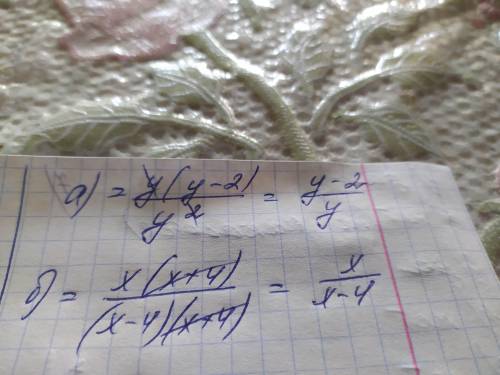 а) = y(y-2)/y² = y-2/y
б) = x(x+4)/(x-4)(x+4) = x/x-4